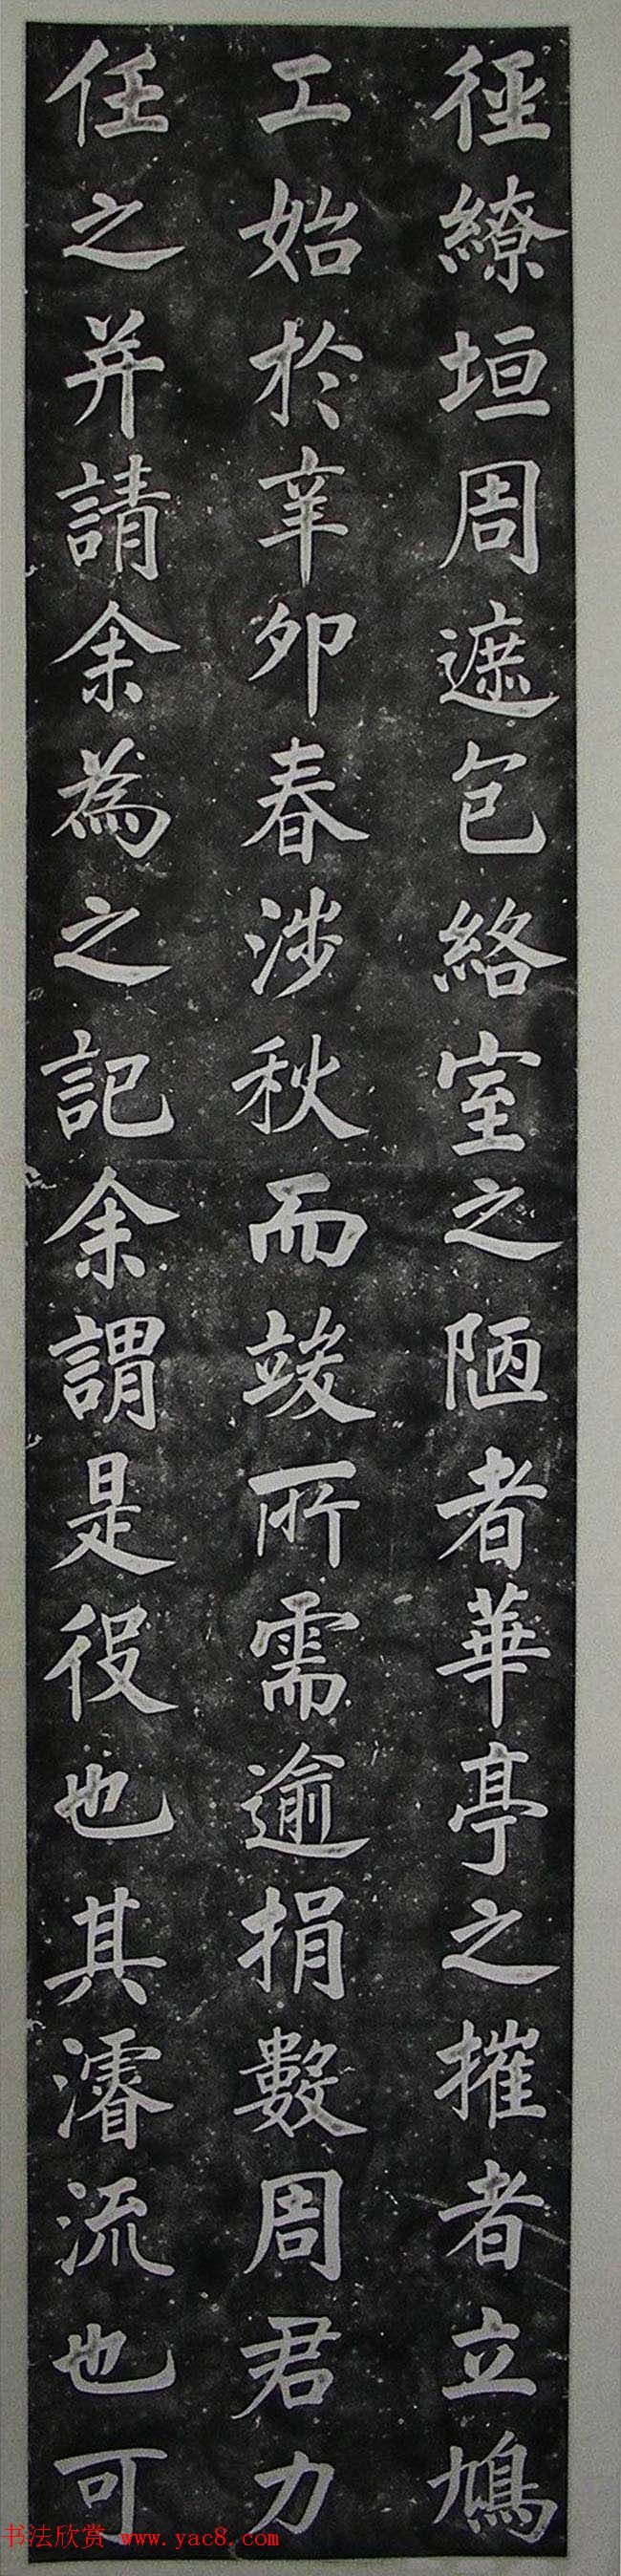 徑繚垣周遮包絡室之陋者華亭之摧者立鳩
工始於辛卯春涉秋而竣所需逾捐數周君力
任之并請余為之記余謂是役也其濬流也可
书法欣赏 www.yac8.com